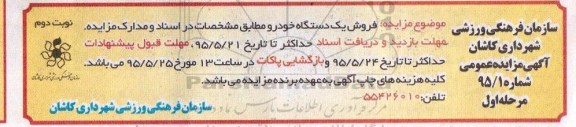 سازمان فرهنگی ورزشی
شهرداری کاشان
آگهی مزایده عمومی
شماره ۹۵/۱
مرحله اول
نوبت دوم
موضوع مزایده: فروش یک دستگاه خودرو مطابق مشخصات در اسناد و مدارک مزایده.
مهلت بازدید و دریافت اسناد حداکثر تا تاریخ ۹۵/۵/۲۱، مهلت قبول پیشنهادات
حداکثر تا تاریخ ۹۵/۵/۲۴ و بازگشایی پاکات در ساعت ۱۳ مورخ ۹۵/۵/۲۵ می باشد.
کلیه هزینه های چاپ آگهی به عهده برنده مزایده می باشد.
تلفن: ۵۵۴۲۶۰۱۰
سازمان فرهنگی ورزشی شهرداری کاشان